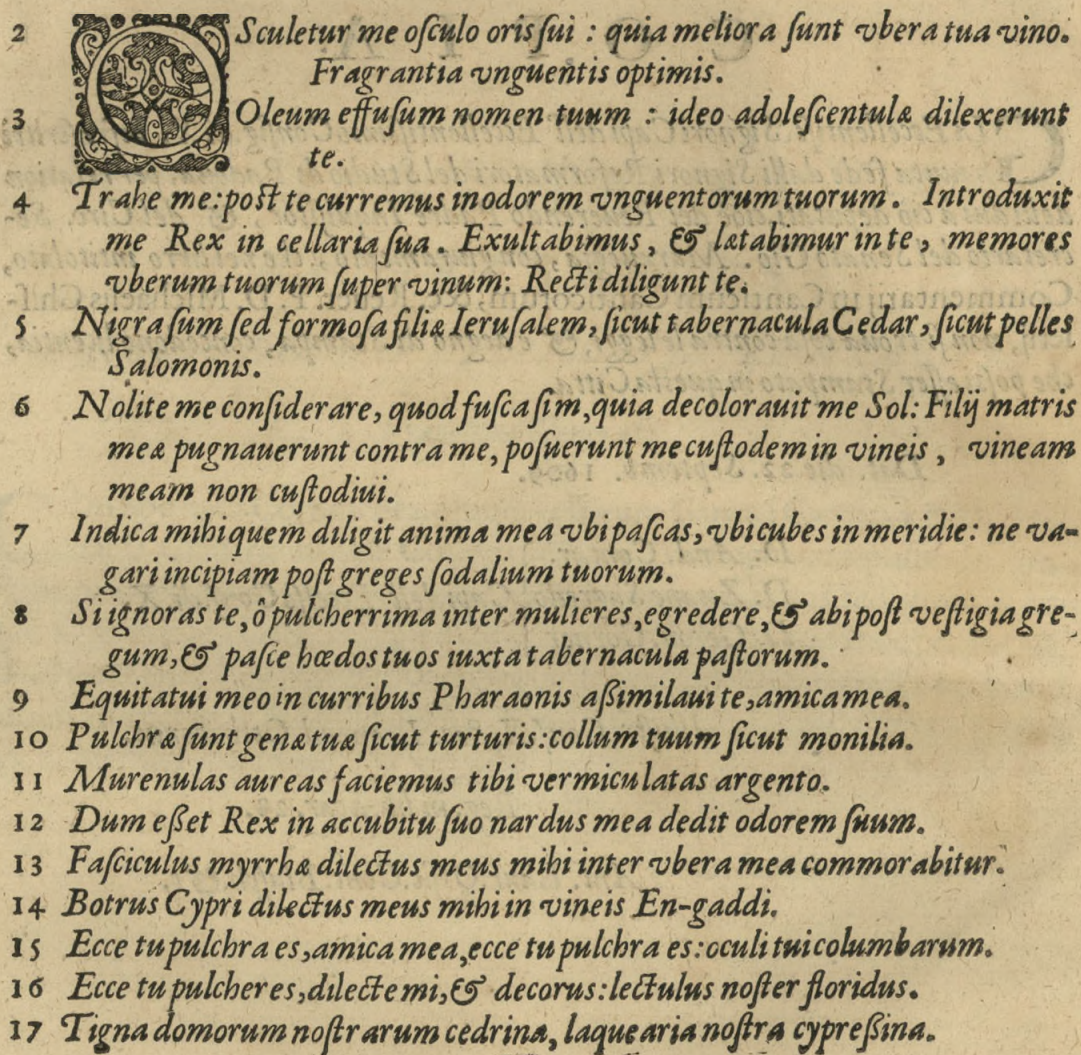 2 OSculetur me oſculo oris ſui : quia meliora ſunt vbera tua vino.
Fragrantia vnguentis optimis.
3 Oleum effuſum nomen tuum : ideo adoleſcentulæ dilexerunt
te.
4 Trahe me: poſt te curremus in odorem vnguentorum tuorum. Introduxit
me Rex in cellaria ſua. Exultabimus, & lætabimur in te, memores
vberum tuorum ſuper vinum: Recti diligunt te.
5 Nigra ſum ſed formoſa filiæ Ieruſalem, ſicut tabernacula Cedar, ſicut pelles
Salomonis.
6 Nolite me conſiderare, quod fuſca ſim, quia decolorauit me Sol: Filij matris
meæ pugnauerunt contra me, poſuerunt me cuſtodem in vineis, vineam
meam non cuſtodiui.
7 Indica mihi quem diligit anima mea vbi paſcas, vbi cubes in meridie: ne va-
gari incipiam poſt greges ſodalium tuorum.
8 Si ignoras te, ô pulcherrima inter mulieres, egredere, & abi poſt veſtigia gre-
gum, & paſce hœdos tuos iuxta tabernacula paſtorum.
9 Equitatui meo in curribus Pharaonis aßimilaui te, amica mea.
10 Pulchræ ſunt genæ tuæ ſicut turturis: collum tuum ſicut monilia.
11 Murenulas aureas faciemus tibi vermiculatas argento.
12 Dum eßet Rex in accubitu ſuo nardus mea dedit odorem ſuum.
13 Faſciculus myrrhæ dilectus meus mihi inter vbera mea commorabitur.
14 Botrus Cypri dilectus meus mihi in vineis En-gaddi.
15 Ecce tu pulchra es, amica mea, ecce tu pulchra es: oculi tui columbarum.
16 Ecce tu pulcher es, dilecte mi, & decorus: lectulus noſter floridus.
17 Tigna domorum noſtrarum cedrina, laquearia noſtra cypreßina.